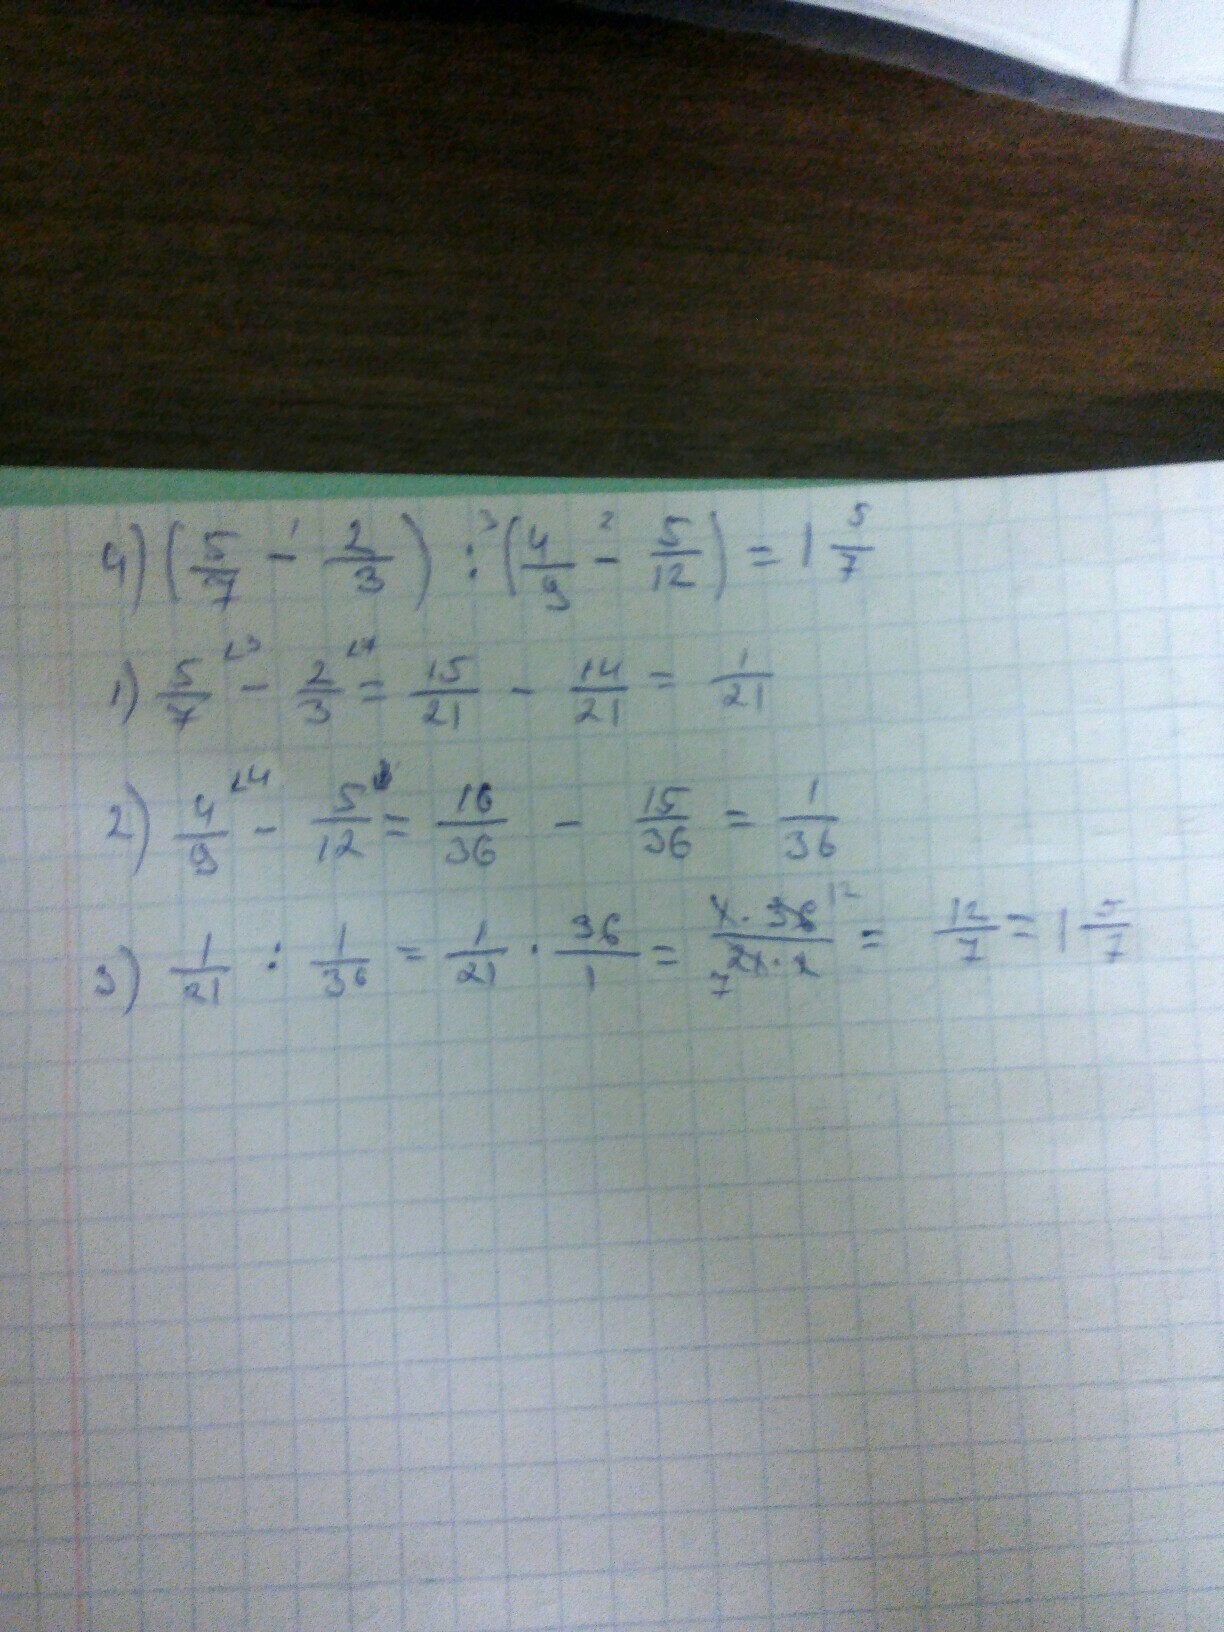 4) (5/7 - ¹ 2/3) :³ (4/9 - ² 5/12) = 1 5/7
1) 5/7 ᴸ³ - 2/3 ᴸ⁷ = 15/21 - 14/21 = 1/21
2) 4/9 ᴸ⁴ - 5/12 = 16/36 - 15/36 = 1/36
3) 1/21 : 1/36 = 1/21 · 36/1 = 1 · 36 ¹²/₇ 21 · 1 = 12/7 = 1 5/7